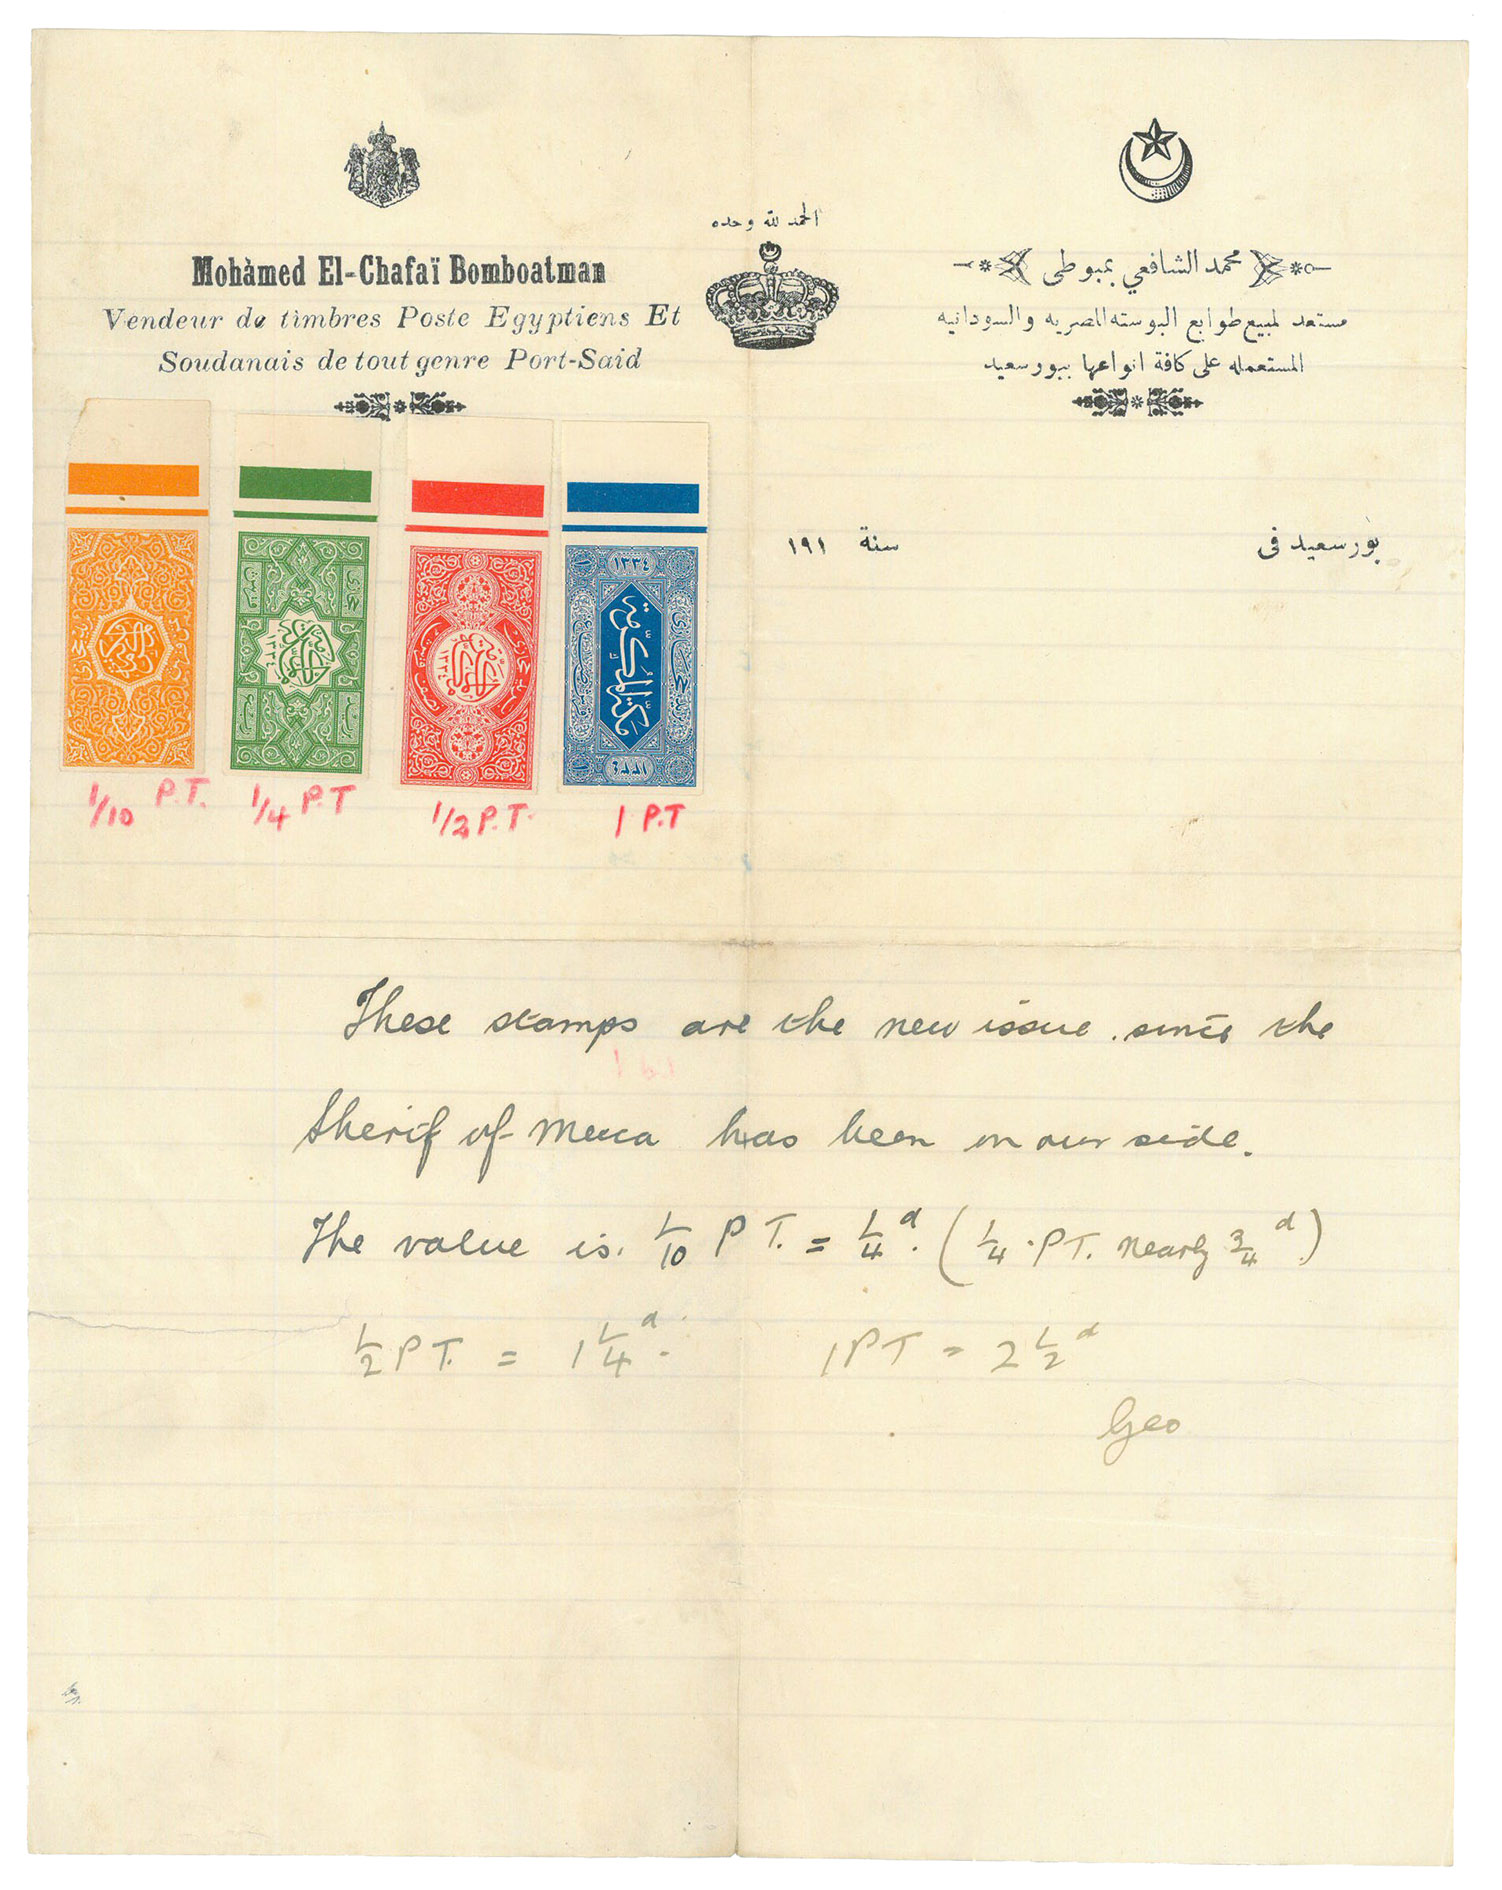 الحمد لله وحده
Mohàmed El-Chafaï Bomboatman
Vendeur de timbres Poste Egyptiens Et
Soudanais de tout genre Port-Said
محمد الشافعي بمبوطى
مستعد لمبيع طوابع البوسته المصريه والسودانيه
المستعمله على كافة انواعها ببورسعيد
بورسعيد فى سنة ١٩١
١٣٣٤
مكة المكرمة
١٣٣٤
1/10 P.T. 1/4 P.T 1/2 P.T. 1 P.T
These stamps are the new issue. since the
Sherif of Mecca has been on our side.
The value is. 1/10 P T. = 1/4 d. (1/4 . PT. nearly 3/4 d.)
1/2 PT. = 1 1/4 d. 1 PT = 2 1/2 d
Geo